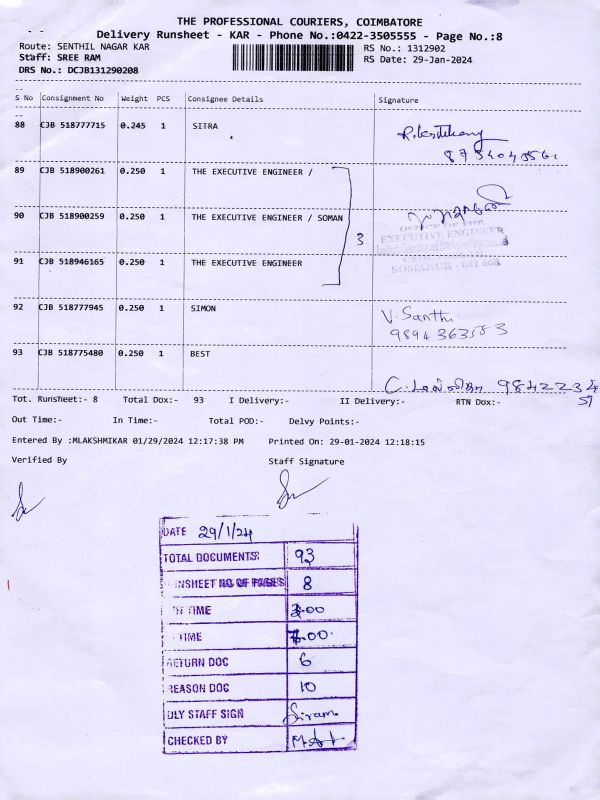 THE PROFESSIONAL COURIERS, COIMBATORE
Delivery Runsheet - KAR - Phone No.:0422-3505555 - Page No.:8
Route: SENTHIL NAGAR KAR
RS No.: 1312902
Staff: SREE RAM
RS Date: 29-Jan-2024
DRS No.: DCJB131290208
S No Consignment No Weight PCS Consignee Details Signature
88 CJB 518777715 0.245 1 SITRA
*
89 CJB 518900261 0.250 1 THE EXECUTIVE ENGINEER /
90 CJB 518900259 0.250 1 THE EXECUTIVE ENGINEER / SOMAN
OFFICE OF THE
EXECUTIVE ENGINEER
3
91 CJB 518946165 0.250 1 THE EXECUTIVE ENGINEER
SOMANUR - 641 668
92 CJB 518777945 0.250 1 SIMON
V. Santhi
93 CJB 518775480 0.250 1 BEST
Tot. Runsheet:- 8 Total Dox:- 93 I Delivery:- II Delivery:- RTN Dox:-
Out Time:- In Time:- Total POD:- Delvy Points:-
Entered By :MLAKSHMIKAR 01/29/2024 12:17:38 PM Printed On: 29-01-2024 12:18:15
Verified By Staff Signature
DATE 29/1/24
TOTAL DOCUMENTS 93
NO OF PAGES 8
TIME
TIME
RETURN DOC 6
REASON DOC 10
DLY STAFF SIGN Siram
CHECKED BY